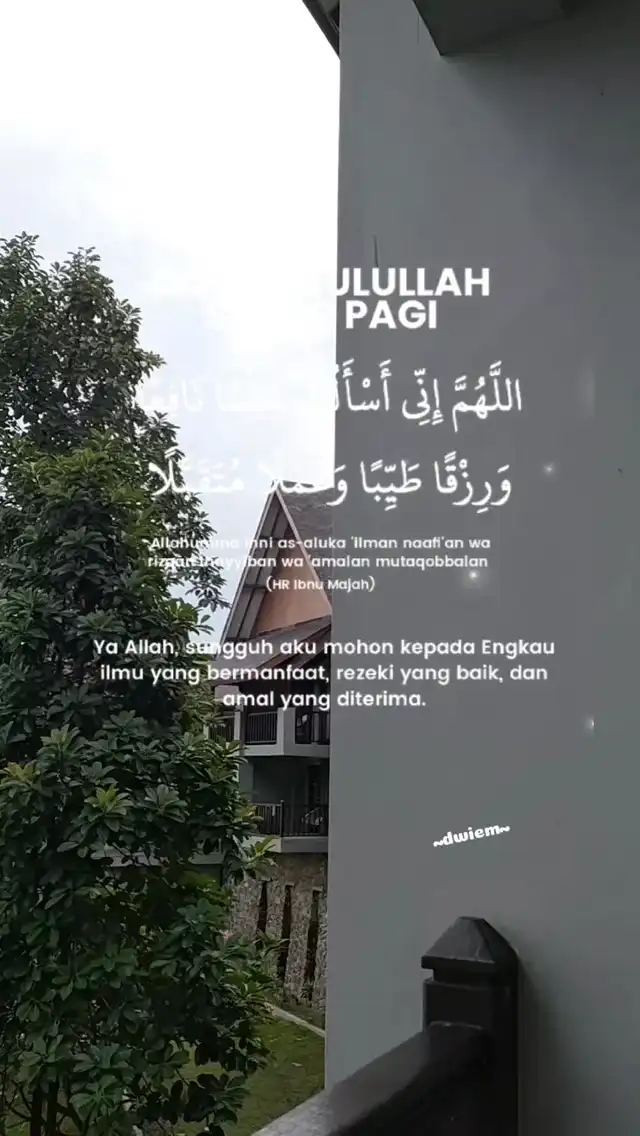 ULULLAH
PAGI
اللَّهُمَّ إِنِّى أَسْأَلُكَ عِلْمًا نَافِعًا
وَرِزْقًا طَيِّبًا وَعَمَلًا مُتَقَبَّلًا
Allahumma inni as-aluka 'ilman naafi'an wa
rizqan thayyiban wa 'amalan mutaqobbalan
(HR Ibnu Majah)
Ya Allah, sungguh aku mohon kepada Engkau
ilmu yang bermanfaat, rezeki yang baik, dan
amal yang diterima.
~dwiem~